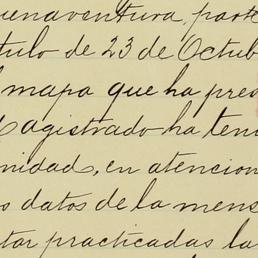 uenaventura, parte
tulo de 23 de Octub
l mapa que ha pres
Magistrado ha teni
nidad, en atencion
os datos de la mens
tar practicadas la